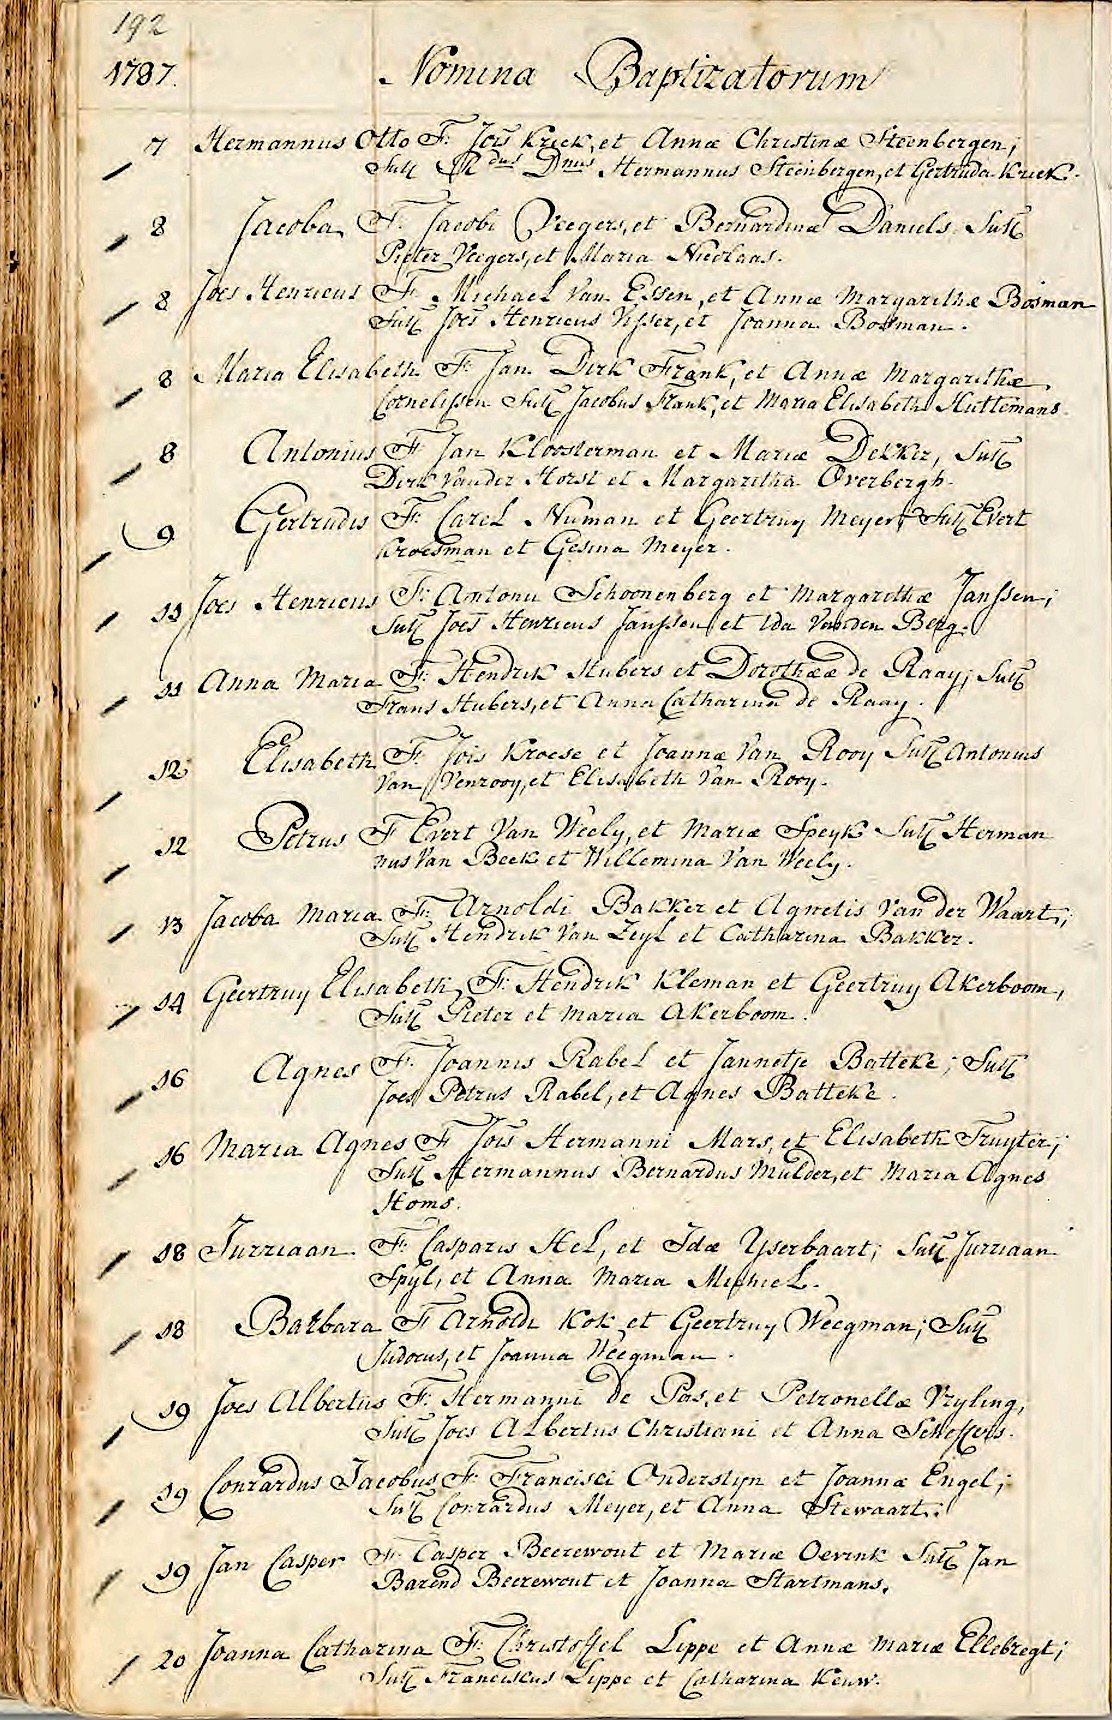 192
1787. Nomina Baptizatorum
7 Hermannus Otto F: Jois Kriek, et Annæ Christinæ Steenbergen;
Sus: Rdus Dnus Hermannus Steenbergen, et Gertruda Kriek.
8 Jacoba F: Jacobi Veegers, et Bernardinæ Daniels. Sus:
Pieter Veegers, et Maria Nicolaas.
8 Joes Henricus F: Michael Van Essen, et Annæ Margarithæ Bosman
Sus: Joes Henricus Visser, et Joanna Bosman.
8 Maria Elisabeth F: Jan Dirk Frank, et Annæ Margarithæ
Cornelissen Sus: Jacobus Frank, et Maria Elisabeth Huttemans.
8 Antonius F: Jan Kloosterman et Mariæ Dekker, Sus:
Dirk Vander Horst et Margaritha Overbergh.
9 Gertrudis F: Carel Numan et Geertruy Meyer, Sus: Evert
Kroesman et Gesina Meyer.
11 Joes Henricus F: Antonii Schoonenberg et Margarithæ Janssen;
Sus: Joes Henricus Janssen et Ida Vanden Berg.
11 Anna Maria F: Hendrik Hubers et Dorothææ de Raay; Sus:
Frans Hubers, et Anna Catharina de Raay.
12 Elisabeth F: Jois Kroese et Joannæ Van Rooy Sus: Antonius
Van Venrooy, et Elisabeth Van Rooy.
12 Petrus F Evert Van Weely, et Mariæ Speyk Sus: Herman
nus Van Beek et Willemina Van Weely.
13 Jacoba Maria F: Arnoldi Bakker et Agnetis Van der Waart;
Sus: Hendrik Van Zeyl et Catharina Bakker.
14 Geertruy Elisabeth F: Hendrik Kleman et Geertruy Akerboom,
Sus: Pieter et Maria Akerboom.
16 Agnes F: Joannis Rabel et Jannetje Batteke; Sus:
Joes Petrus Rabel, et Agnes Batteke.
16 Maria Agnes F Jois Hermanni Mars, et Elisabeth Fruyter;
Sus: Hermannus Bernardus Mulder, et Maria Agnes
Homs.
18 Jurriaan F: Casparis Hel, et Idæ Yserbaart; Sus: Jurriaan
Spyl, et Anna Maria Michiel.
18 Barbara F Arnoldi Kok et Geertruy Weegman; Sus:
Judocus, et Joanna Weegman.
19 Joes Albertus F: Hermanni de Pas, et Petronellæ Vryling,
Sus: Joes Albertus Christiani et Anna Scheffers.
19 Conrardus Jacobus F: Francisci Onderstyn et Joannæ Engel;
Sus: Conrardus Meyer, et Anna Stewaart.
19 Jan Casper F: Casper Beerewout et Mariæ Oevink Sus: Jan
Barend Beerewout et Joanna Startmans.
20 Joanna Catharina F: Christoffel Lippe et Annæ Mariæ Ellebregt;
Sus: Franciscus Lippe et Catharina Keuw.